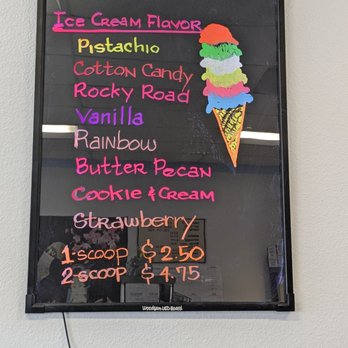 Ice Cream Flavor
Pistachio
Cotton Candy
Rocky Road
Vanilla
Rainbow
Butter Pecan
Cookie & Cream
Strawberry
1-scoop $2.50
2-scoop $4.75
Woodsam LED Board